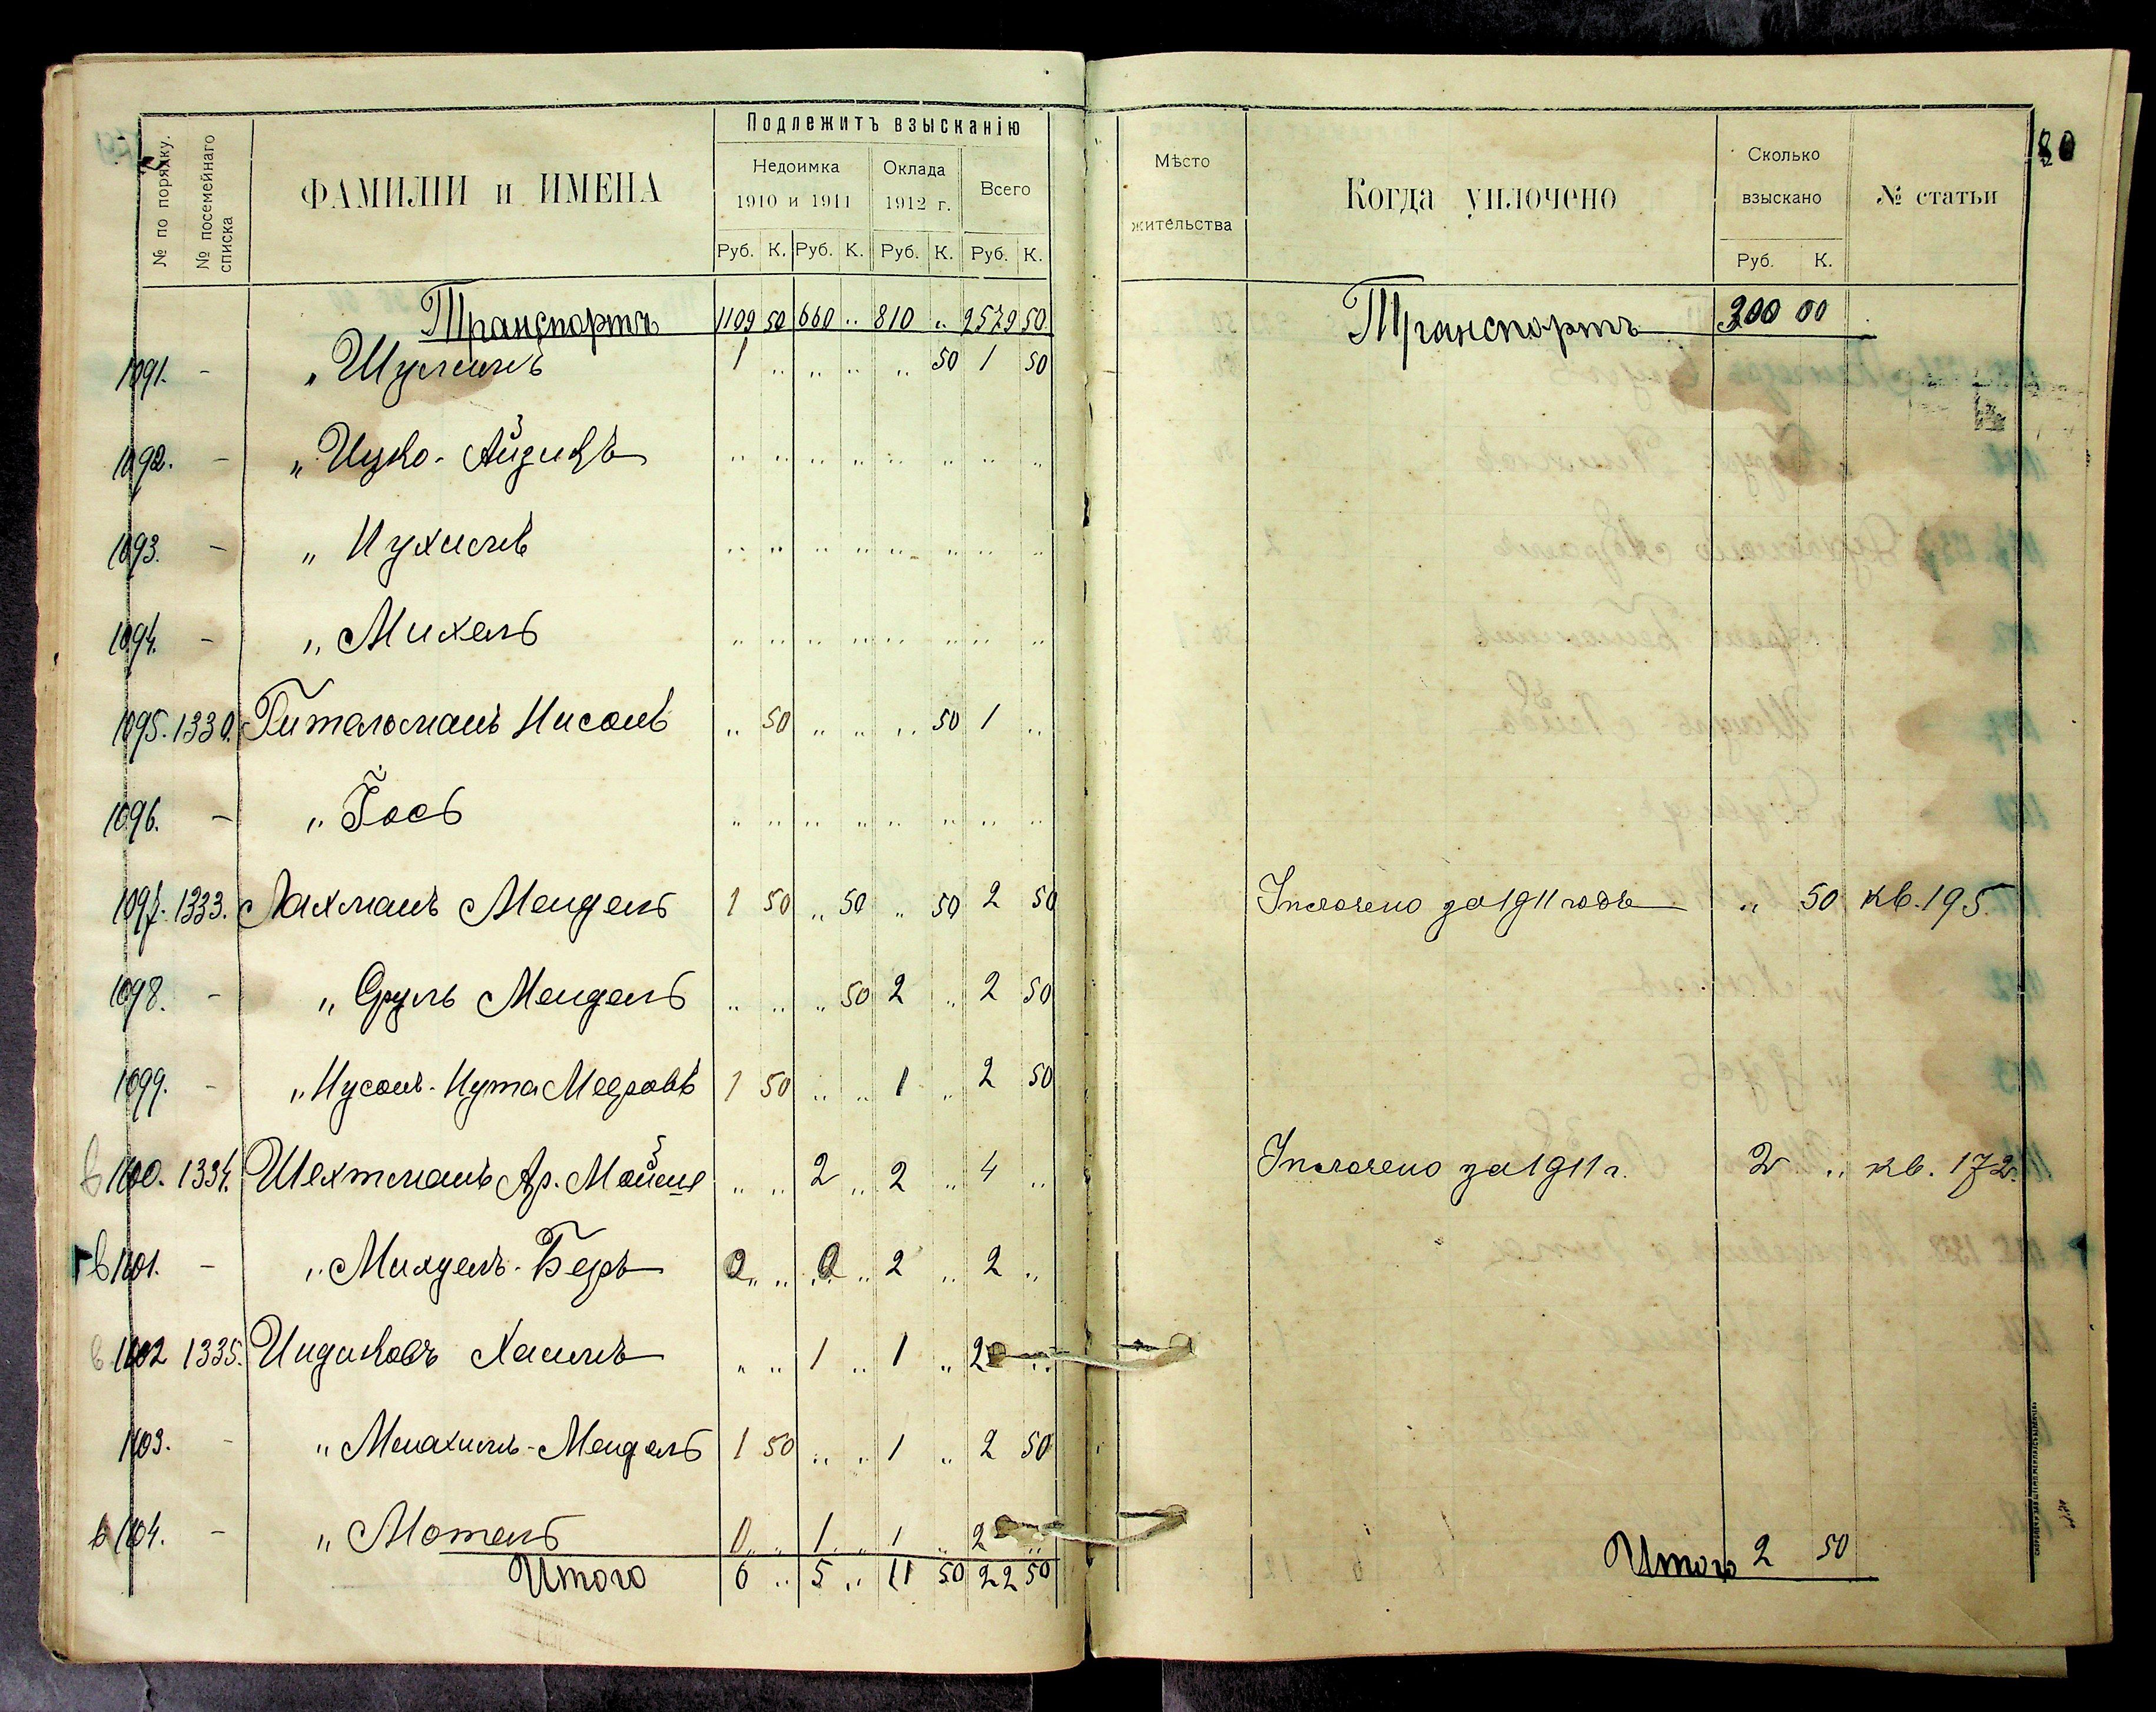 № по порядку.
№ посемейнаго списка
ФАМИЛІИ и ИМЕНА
Подлежитъ взысканію
Недоимка 1910 и 1911
Оклада 1912 г.
Всего
Руб. К. Руб. К. Руб. К. Руб. К.
Транспортъ 1109 50 660 .. 810 .. 2579 50
1091. - „ Шулимъ 1 .. .. .. .. 50 1 50
1092. - „ Ицко-Айзикъ .. .. .. .. .. .. .. ..
1093. - „ Нухимъ .. .. .. .. .. .. .. ..
1094. - „ Михель .. .. .. .. .. .. .. ..
1095. 1330. Гительманъ Нисонъ .. 50 .. .. .. 50 1 ..
1096. - „ Іось .. .. .. .. .. .. .. ..
1097. 1333. Лахманъ Мендель 1 50 .. 50 .. 50 2 50
1098. - „ Сруль Мендель .. .. .. 50 2 .. 2 50
1099. - „ Нусонъ-Нута Мееровъ 1 50 .. .. 1 .. 2 50
в 1100. 1334. Шехтманъ Ар. Мойше .. .. 2 .. 2 .. 4 ..
в 1101. - „ Михуель-Беръ 0 .. .. 0 .. 2 .. 2 ..
в 1102 1335. Чидиковъ Хаимъ .. .. 1 .. 1 .. 2 ..
1103. - „ Менахимъ-Мендель 1 50 .. .. 1 .. 2 50
в 1104. - „ Мотель 0 .. 1 .. 1 .. 2 ..
Итого 6 .. 5 .. 11 50 22 50
80
Мѣсто жительства
Когда уплочено
Сколько взыскано
Руб. К.
№ статьи
Транспортъ 300 00
Уплочено за 1911 годъ .. 50 кв. 195
Уплочено за 1911 г. 2 .. кв. 172.
Итого 2 50